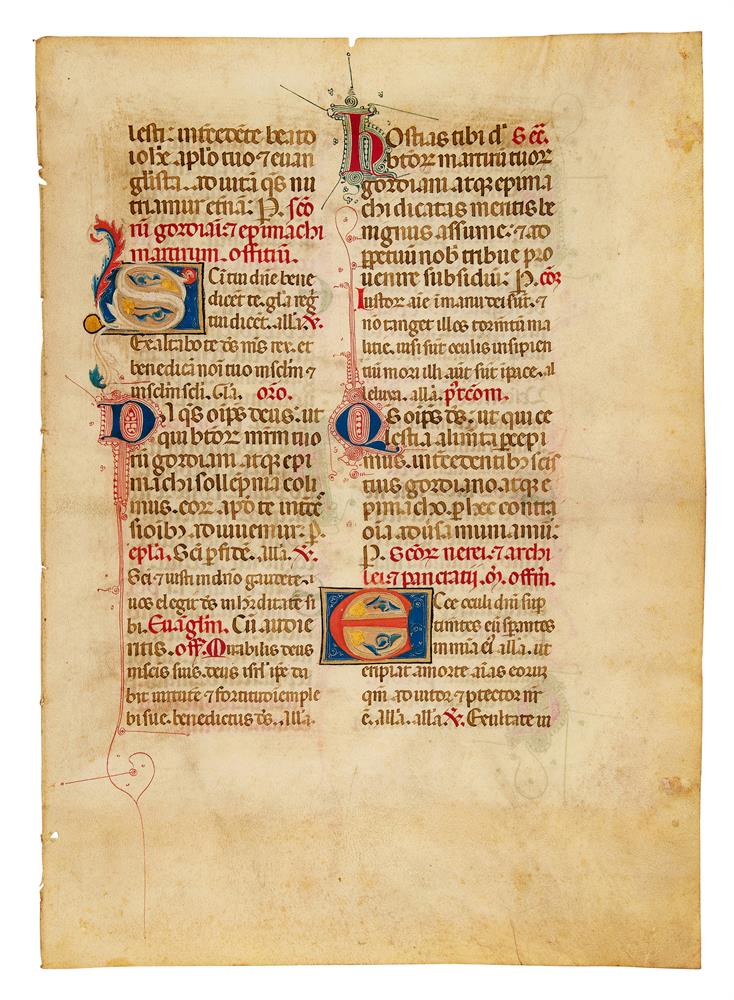 lesti: intercedete beato
iohe aplo tuo ⁊ euan
glista. ad uitā qs nu
triamur etnā: P. scō
rū gordiani ⁊ epimachi
martirum. offitiū.
Scī tui dn̄e bene
dicet te. glā reḡ
tui dicet. all'a. V.
Exaltabo te ds ms rex. et
benedicā noī tuo in sclm ⁊
in sclm scli. Gla. oro.
Da qs oīps deus: ut
qui btoꝝ mrm tuo
rū gordiani atqꝫ epi
machi sollēpnia coli
mus. eoꝝ apd te intc̄e
sioībꝫ adiuuemur. P.
epla. Sci p fidē. alla. V.
Sci ⁊ iusti in dn̄o gaudete. ⁊
uos elegit ds in hr̄ditatē si
bi. Euāglm. Cū audie
ritis. off. Mirabilis deus
in scis suis. deus isrl' ipe da
bit uirtutē ⁊ fortitudīem ple
bi sue. benedictus ds. all'a.
Hostias tibi d. Sec̄.
btoꝝ martirū tuoꝝ
gordiani atqꝫ epima
chi dicatas meritis be
nignus assume: ⁊ ad
ppetuū nob tribue pro
uenire subsidiū: P. cōꝫ
Iustoꝝ aīe ī manu dei sūt. ⁊
nō tanget illos tormtū ma
litie. uisi sūt oculis insipien
tiū mori illi aūt sūt ī pace. al
leluya. alla. p̄tcom.
Qs oīps ds: ut qui ce
lestia alimta pcepi
mus. intercedentibꝫ scis
tuis gordiano atqꝫ e
pimacho. p hec contra
oīa aduersa muniamū:
P. Scōꝝ nerei ⁊ archi
lei ⁊ pancratij. m̄. offm.
Ecce oculi dn̄i sup
timētes eū spantes
in mīa eī alla. ut
eripiat a morte aīas eoruꝫ
qm̄ adiutor ⁊ ptector nr̄
ē. all'a. all'a. V. Exultate iu